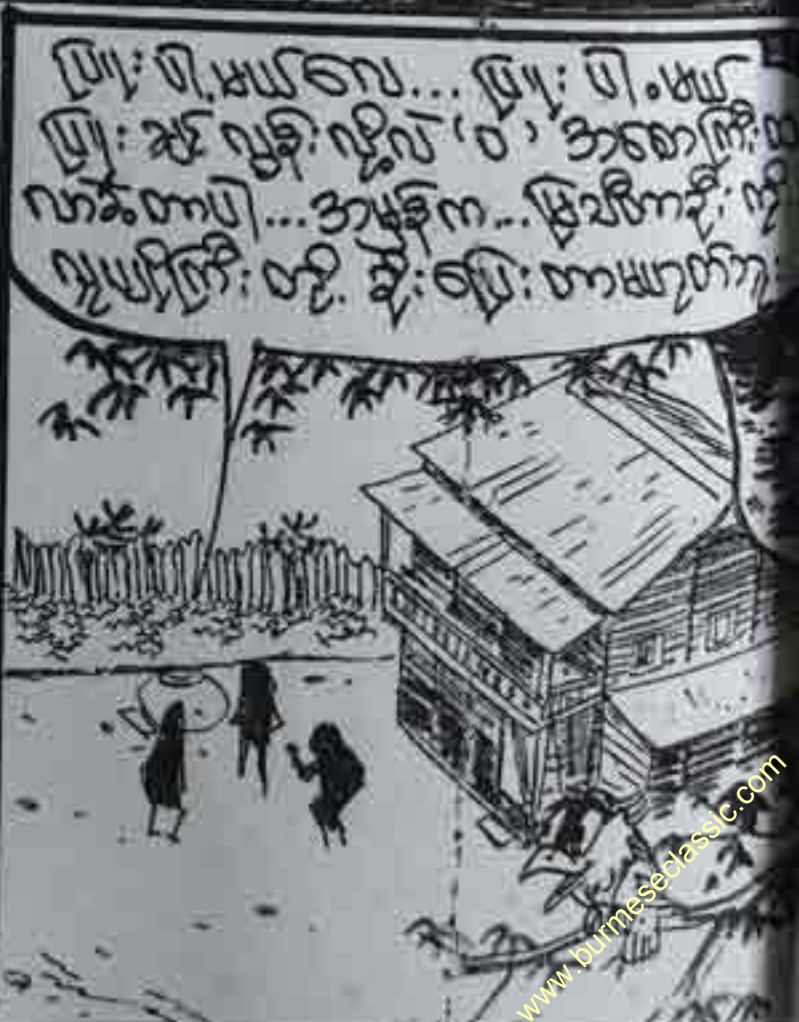 ပါ့မယ်လေ... ပါ့မယ်
ချင် လွန်း လို့လဲ 'ဝ' အစောကြီး
လာခဲ့တာပါ...အမှန်က...မြသီတာဦး ကို
လူပျိုကြီး တို့ ခိုး ပြေး တာမဟုတ်ဘူး
www.burmeseclassic.com